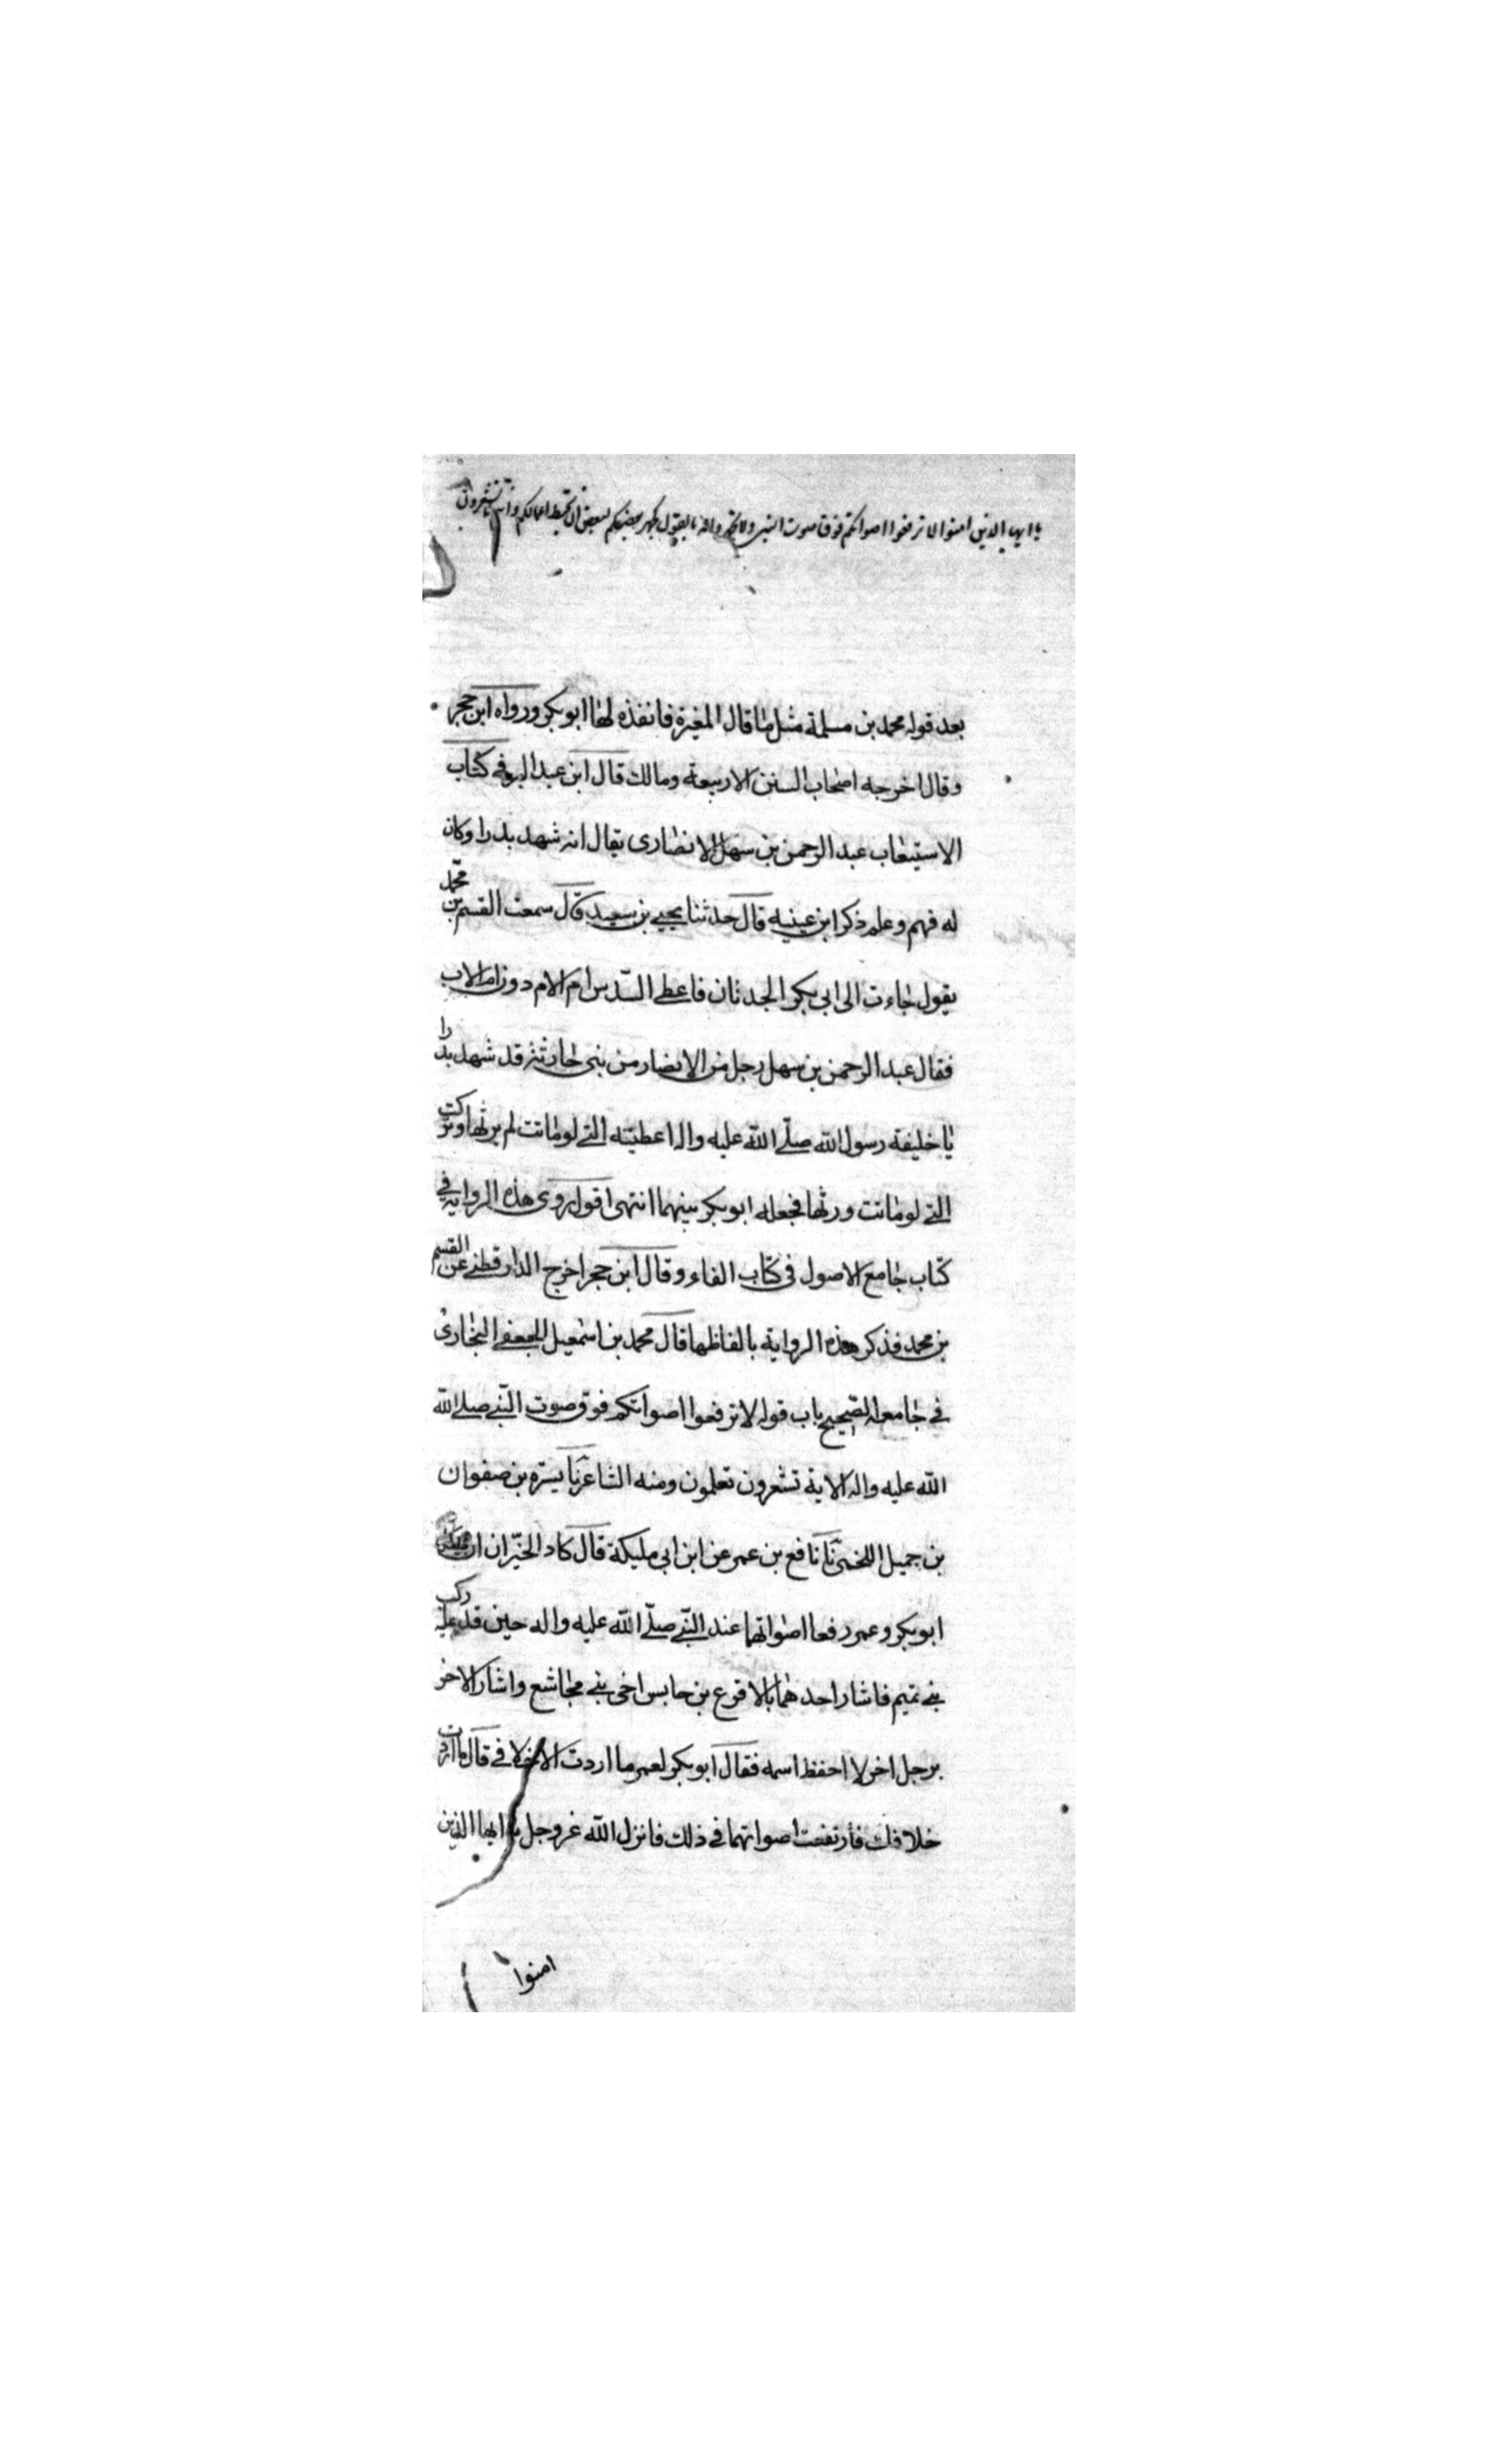 يا ايها الذين امنوا لا ترفعوا اصواتكم فوق صوت النبي ولا تجهروا له بالقول كجهر بعضكم لبعض ان تحبط اعمالكم وانتم لا تشعرون
بعد قوله محمد بن مسلمة مثل ما قال المغيرة فانفذه لها ابو بكر ورواه ابن حجر
وقال اخرجه اصحاب السنن الاربعة ومالك قال ابن عبد البر في كتاب
الاستيعاب عبد الرحمن بن سهل الانصارى يقال انه شهد بدرا وكان
له فهم وعلم ذكر ابن عيينه قال حدثنا يحيي بن سعيد قال سمعت القسم بن محمد
يقول جاءت الى ابي بكر الجدتان فاعطى السّدس ام الام دون ام الاب
فقال عبد الرحمن بن سهل رجل من الانصار من بنى حارثة قد شهد بدرا
يا خليفة رسول الله صلّى الله عليه واله اعطيته التي لو ماتت لم يرثها وتركت
التي لو ماتت ورثها فجعله ابو بكر بينهما انتهى اقول روى هذه الرواية في
كتاب جامع الاصول في كتاب الفاء وقال ابن حجر اخرج الدار قطني عن القسم
بن محمد فذكر هذه الرواية بالفاظها قال محمد بن اسمعيل الجعفي البخارى
في جامعه الصّحيح باب قوله لا ترفعوا اصواتكم فوق صوت النّبي صلى الله
الله عليه واله الاية تشعرون تعلمون ومنه الشاعر نا يسرة بن صفوان
بن جميل اللخمى نا نافع بن عمر عن ابن ابي مليكة قال كاد الخيّران ان
ابو بكر وعمر رفعا اصواتهما عند النّبي صلّى الله عليه واله حين قدم عليه ركب
بني تميم فاشار احدهما بالاقرع بن حابس اخى بني مجاشع واشار الاخر
برجل اخر لا احفظ اسمه فقال ابو بكر لعمر ما اردت الا خلافي قال ما اردت
خلافك فارتفعت اصواتهما في ذلك فانزل الله عز وجل يا ايها الذين
امنوا